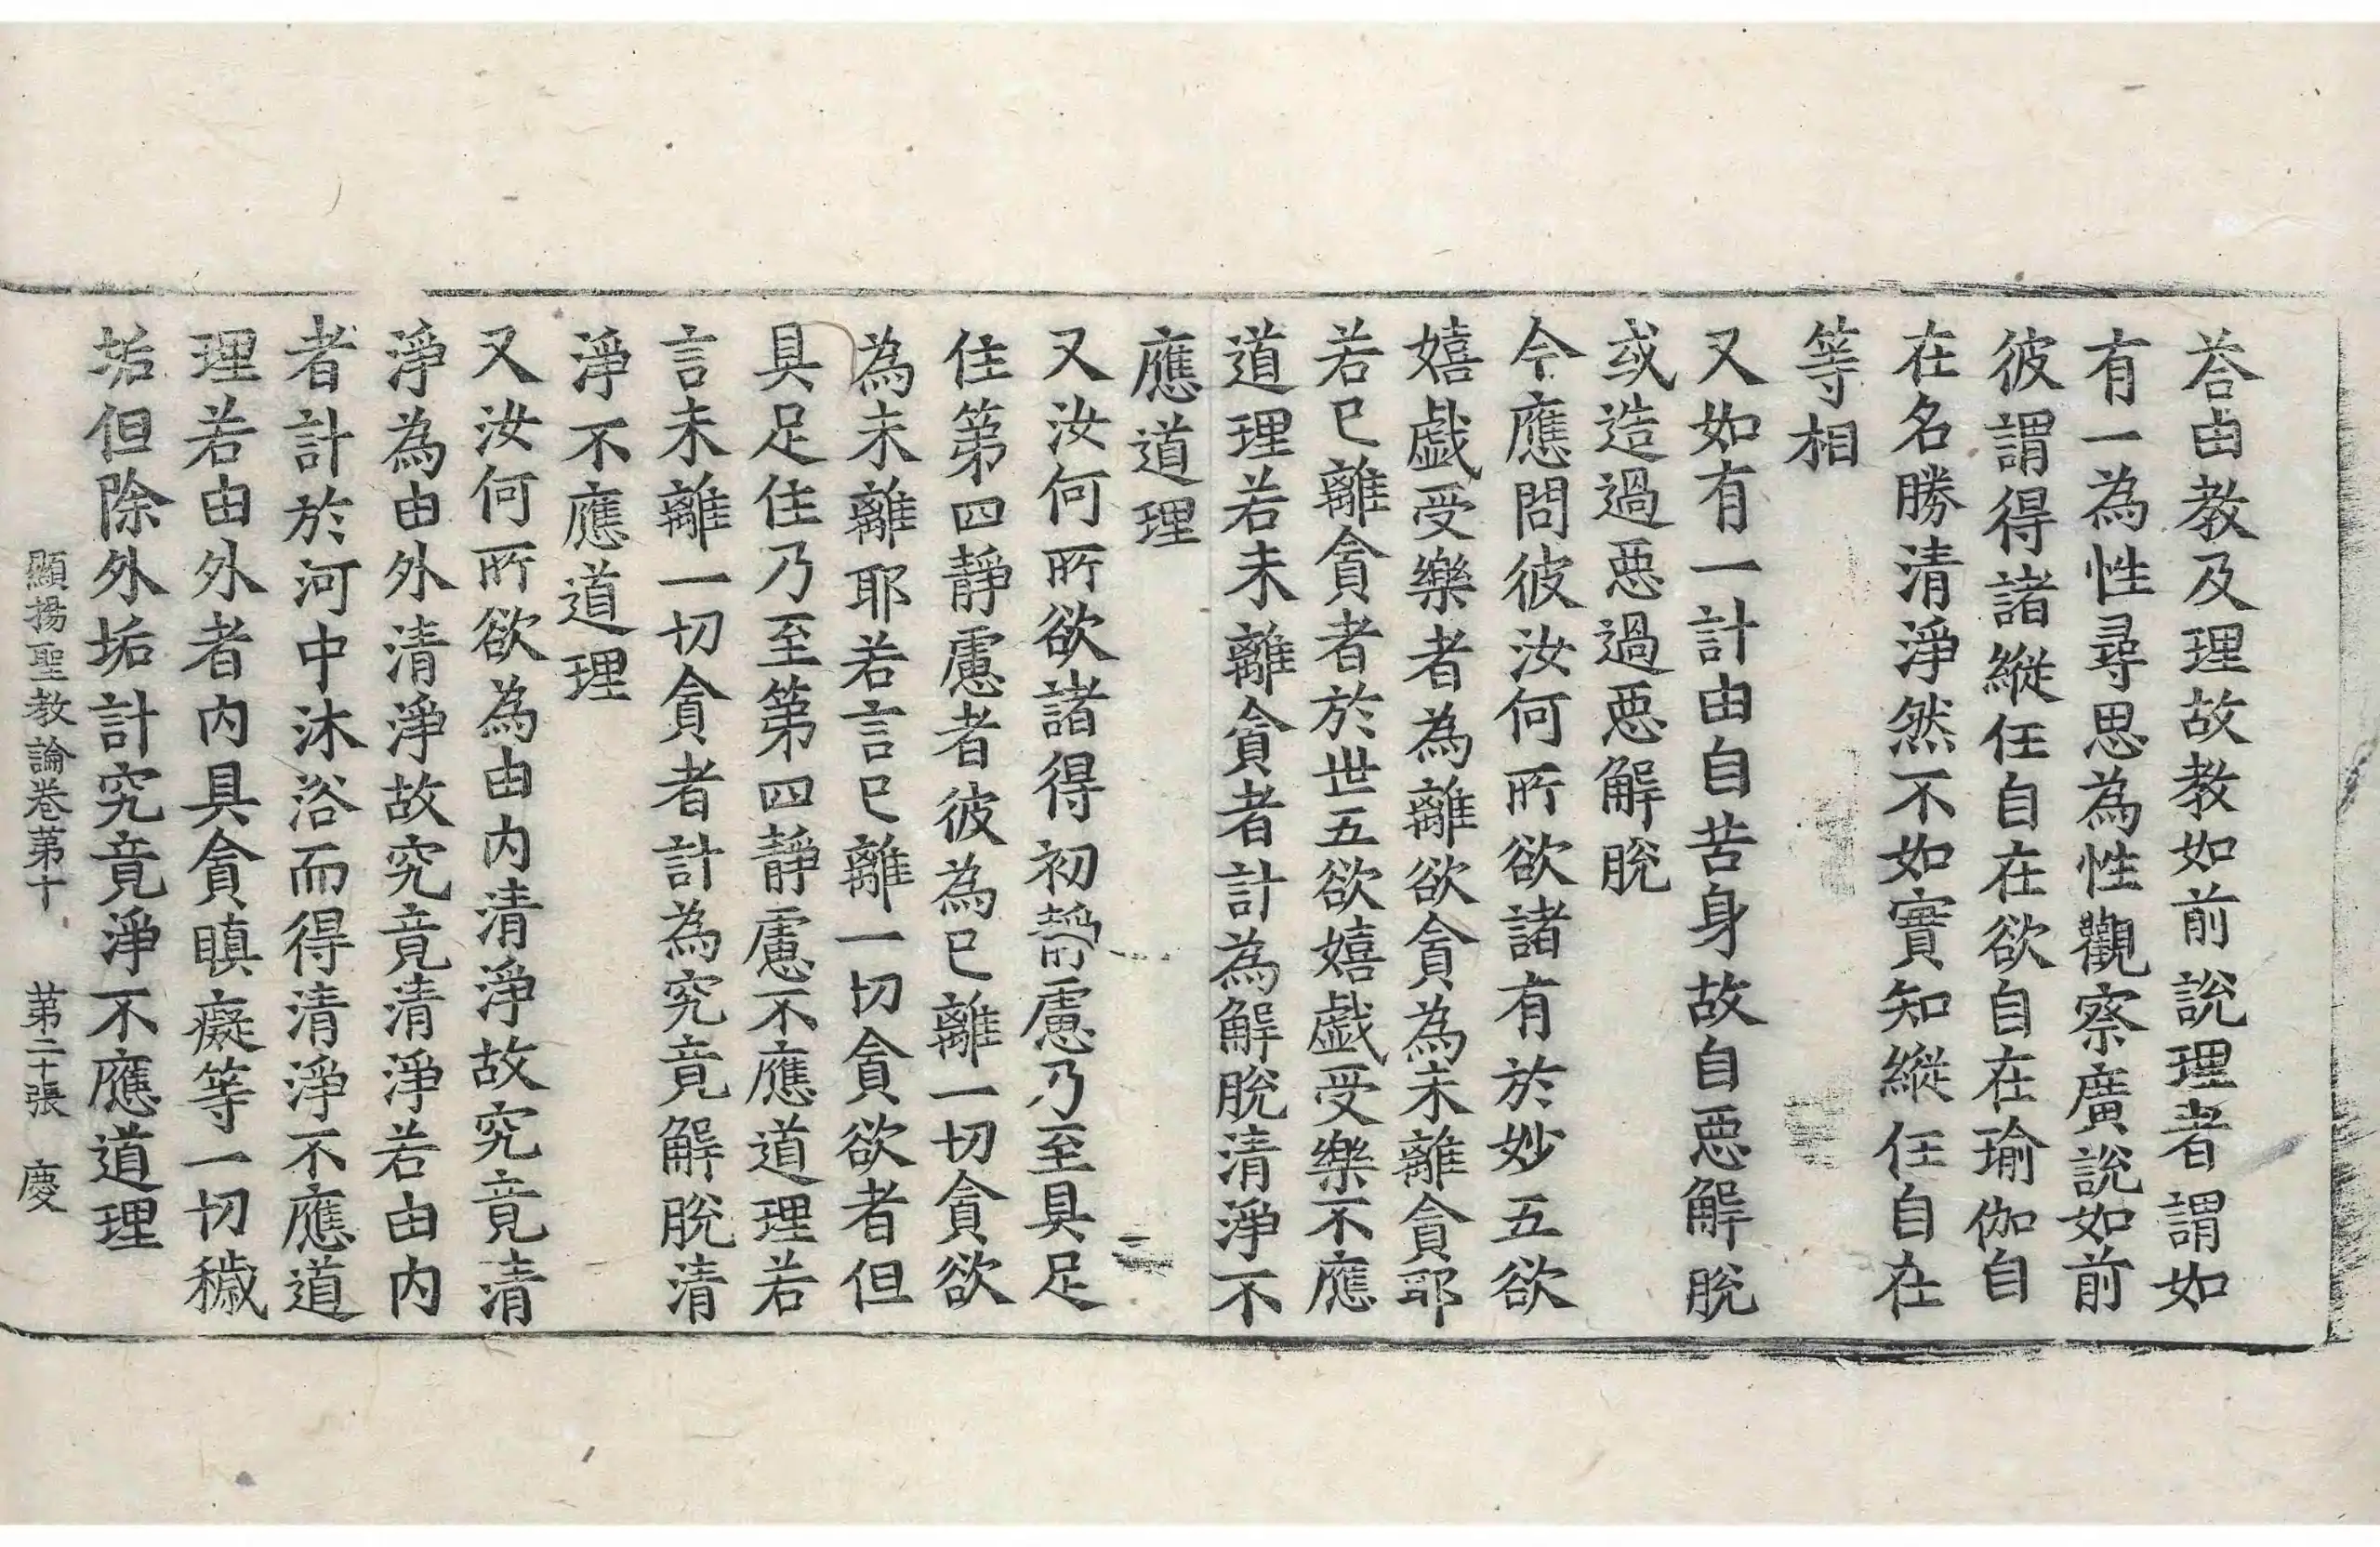 荅由教及理故教如前說理者謂如
有一為性尋思為性觀察廣說如前
彼謂得諸縱任自在欲自在瑜伽自
在名勝清淨然不如實知縱任自在
等相
又如有一計由自苦身故自惡解脫
或造過惡過惡解脫
今應問彼汝何所欲諸有於妙五欲
嬉戱受樂者為離欲貪為未離貪耶
若已離貪者於世五欲嬉戱受樂不應
道理若未離貪者計為解脫清淨不
應道理
又汝何所欲諸得初靜慮乃至具足
住第四靜慮者彼為已離一切貪欲
為未離耶若言已離一切貪欲者但
具足住乃至第四靜慮不應道理若
言未離一切貪者計為究竟解脫清
淨不應道理
又汝何所欲為由内清淨故究竟清
淨為由外清淨故究竟清淨若由内
者計於河中沐浴而得清淨不應道
理若由外者内具貪瞋癡等一切穢
垢但除外垢計究竟淨不應道理
顯揚聖教論卷第十　第二十張　慶